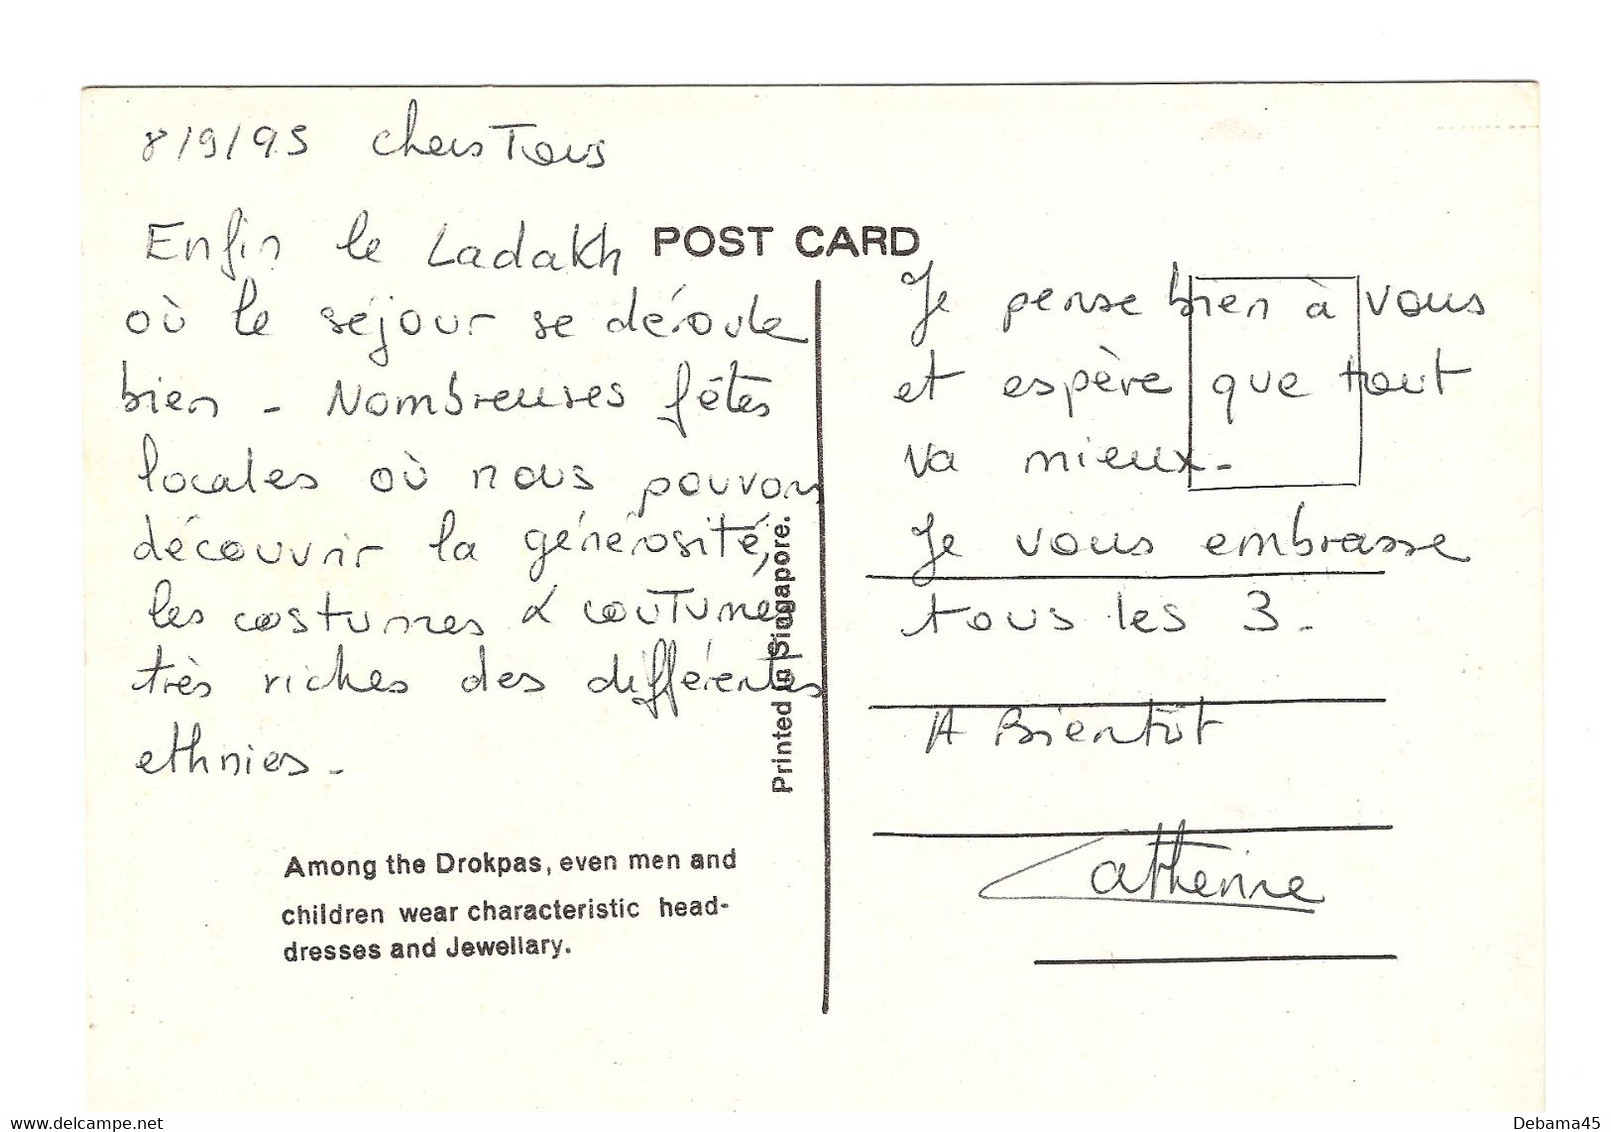 8/9/95 chers Tous
Enfin le Ladakh
où le séjour se déroule
bien - Nombreuses fêtes
locales où nous pouvons
découvrir la générosité,
les costumes & couTumes
très riches des différentes
ethnies -
POST CARD
Je pense bien à vous
et espère que tout
va mieux -
Je vous embrasse
tous les 3 -
A Bientôt
Catherine
Printed in Singapore.
Among the Drokpas, even men and
children wear characteristic head-
dresses and Jewellary.
Debama45